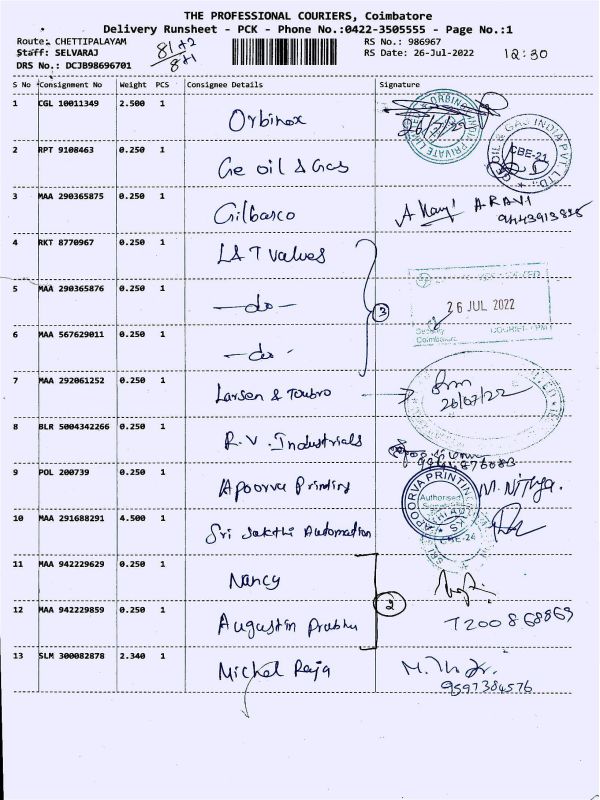 THE PROFESSIONAL COURIERS, Coimbatore
Delivery Runsheet - PCK - Phone No.:0422-3505555 - Page No.:1
Route: CHETTIPALAYAM 81+2 RS No.: 986967
Staff: SELVARAJ 8+1 RS Date: 26-Jul-2022 12:30
DRS No.: DCJB98696701
S No Consignment No Weight PCS Consignee Details Signature
1 CGL 10011349 2.500 1 Orbinox 26/7/22
2 RPT 9108463 0.250 1 Ge oil & Gas CBE-21
3 MAA 290365875 0.250 1 Gilbarco ARAVI
4 RKT 8770967 0.250 1 L&T valves
5 MAA 290365876 0.250 1 -do- 3 26 JUL 2022
6 MAA 567629011 0.250 1 -do- Security Coimbatore
7 MAA 292061252 0.250 1 Larsen & Toubro 26/07/22
8 BLR 5004342266 0.250 1 R.V. Industrials
9 POL 200739 0.250 1 Apoorva Printing APOORVA PRINTING Authorised M. Nithya.
10 MAA 291688291 4.500 1 Sri Sakthi Automation CBE-24
11 MAA 942229629 0.250 1 Nancy
12 MAA 942229859 0.250 1 Augustin Prabhu 2 7200868869
13 SLM 300082878 2.340 1 Michel Raja 9597384576